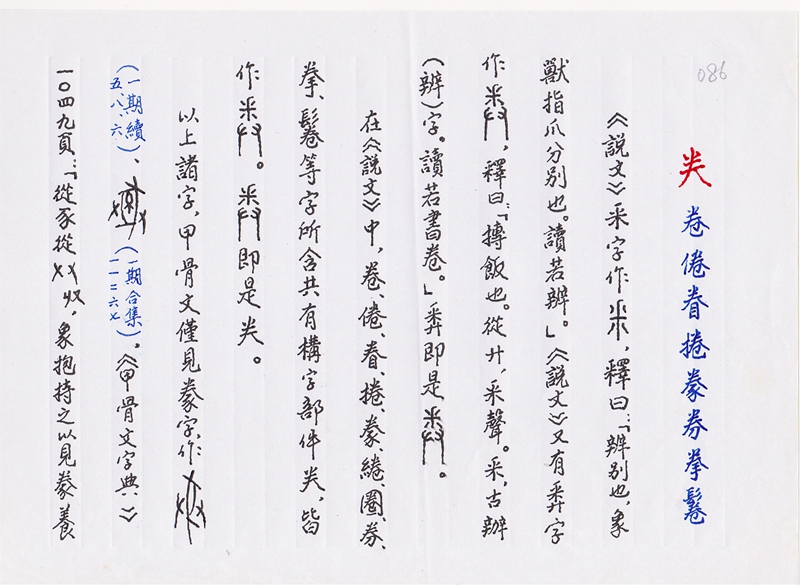 086
龹 卷倦眷捲豢券拳鬈
《說文》釆字作，釋曰：「辨別也，象
獸指爪分別也。讀若辨。」《說文》又有𢍏字
作，釋曰：「摶飯也。從廾，釆聲。釆，古辦
（辨）字。讀若書卷。」𢍏即是。
在《說文》中，卷、倦、眷、捲、豢、綣、圈、券、
拳、鬈等字所含共有構字部件龹，皆
作。即是龹。
以上諸字，甲骨文僅見豢字，作
（一期續五.八.六）、（一期合集一一二六七）。《甲骨文字典》
一〇四九頁：「從豕從収，象抱持之以見豢養